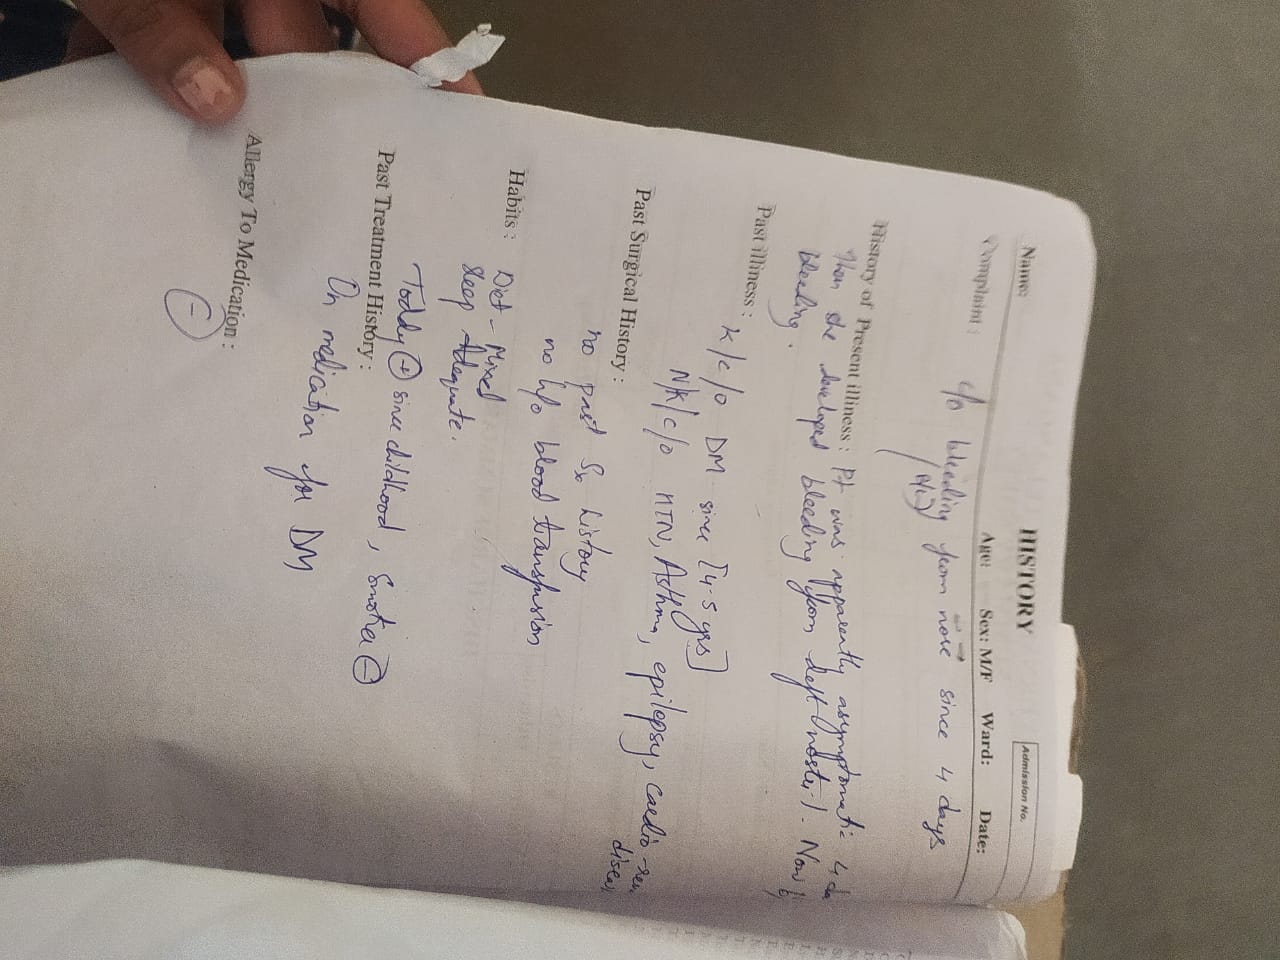 HISTORY
Admission No.
Name: Age: Sex: M/F Ward: Date:
Complaint : c/o bleeding from nose since 4 days
History of Present illness : Pt was apparently asymptomatic 4 da
then she developed bleeding from left nostril. Now
bleeding.
Past illness : K/c/o DM since [4-5 yrs]
N/K/c/o HTN, Asthma, epilepsy, cardio
diseas
Past Surgical History :
no past Sx history
no h/o blood transfusion
Habits : Diet - Mixed
Sleep Adequate.
Toddy + since childhood, Smoker -
Past Treatment History :
On medication for DM
Allergy To Medication :
-